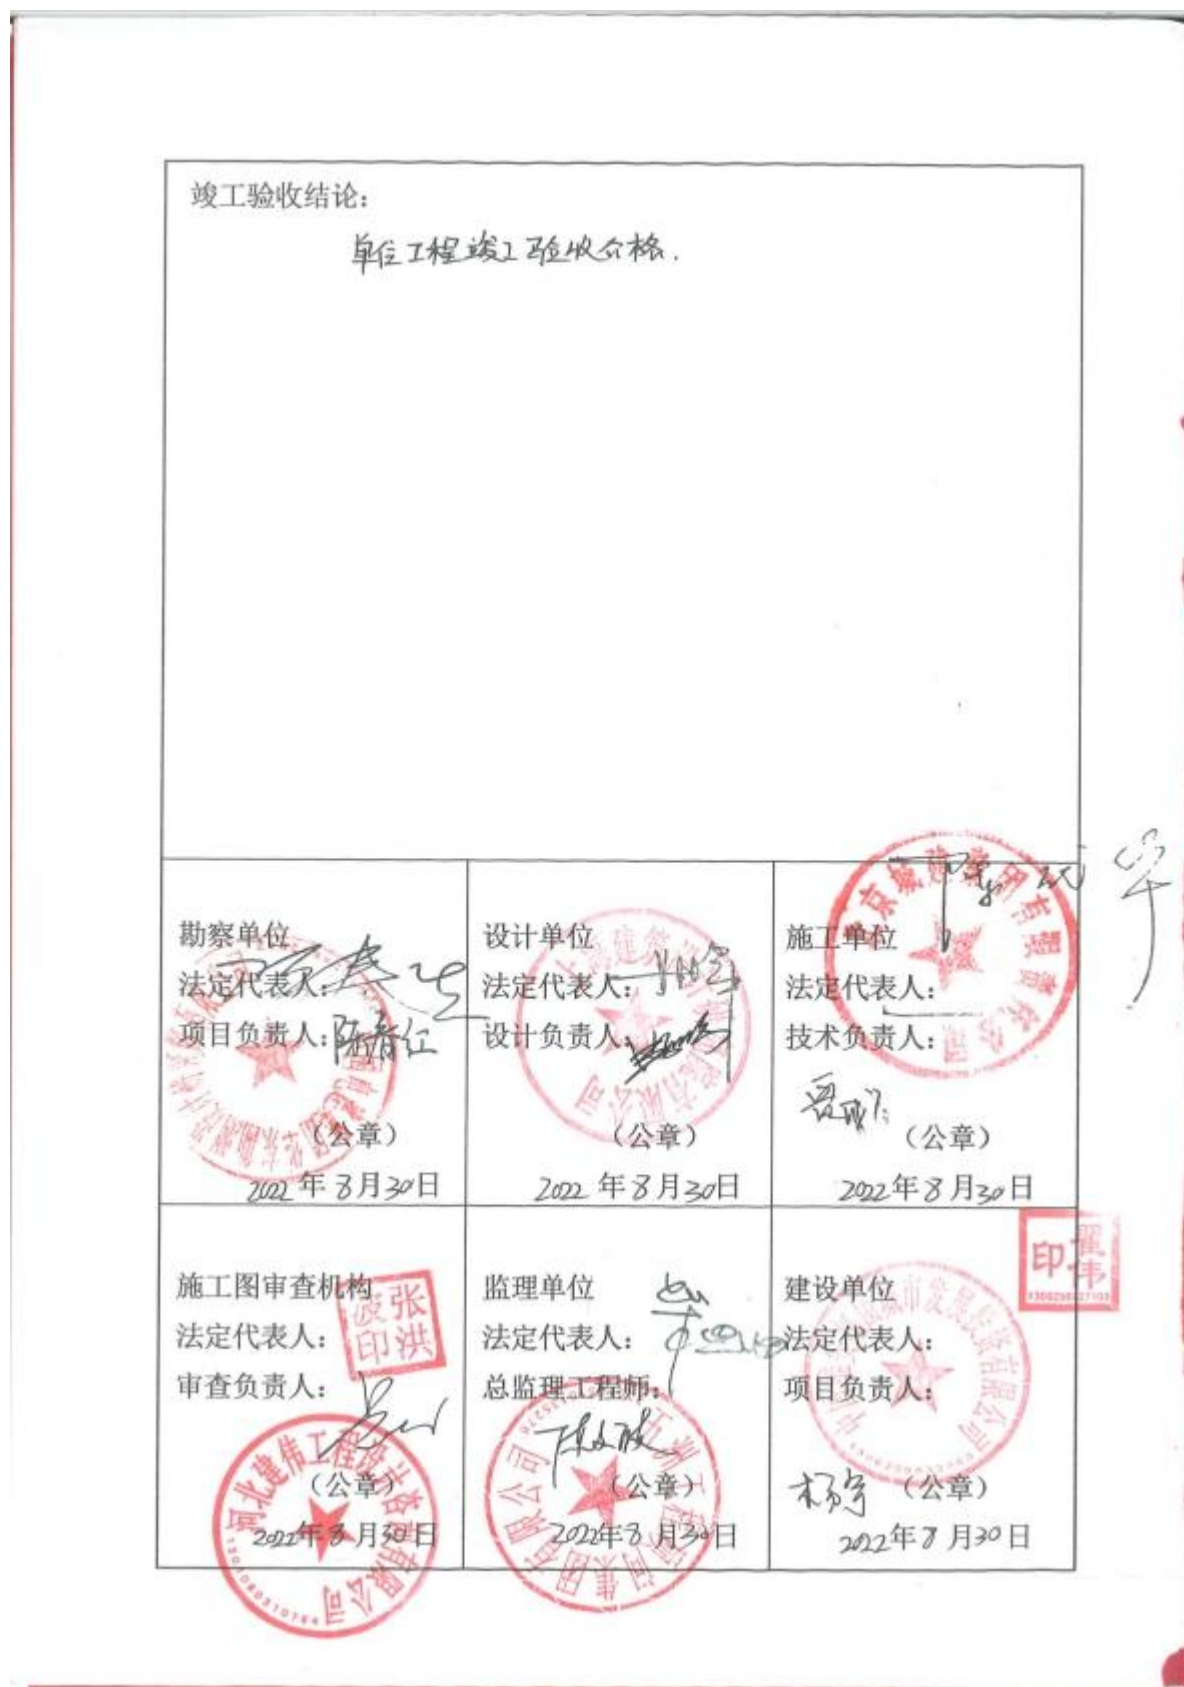 竣工验收结论：
单位工程竣工验收合格.
勘察单位
法定代表人：
项目负责人：陈春红
（公章）
2022年8月30日
设计单位
法定代表人：
设计负责人：
（公章）
2022年8月30日
施工单位
法定代表人：
技术负责人：
（公章）
2022年8月30日
北京城建集团有限责任公司
施工图审查机构
法定代表人：
审查负责人：
（公章）
2022年8月30日
张洪波印
河北建伟工程设计咨询有限公司
监理单位
法定代表人：
总监理工程师：
（公章）
2022年8月30日
五洲工程顾问集团有限公司
建设单位
法定代表人：
项目负责人：
杨宇
（公章）
2022年8月30日
翟伟印